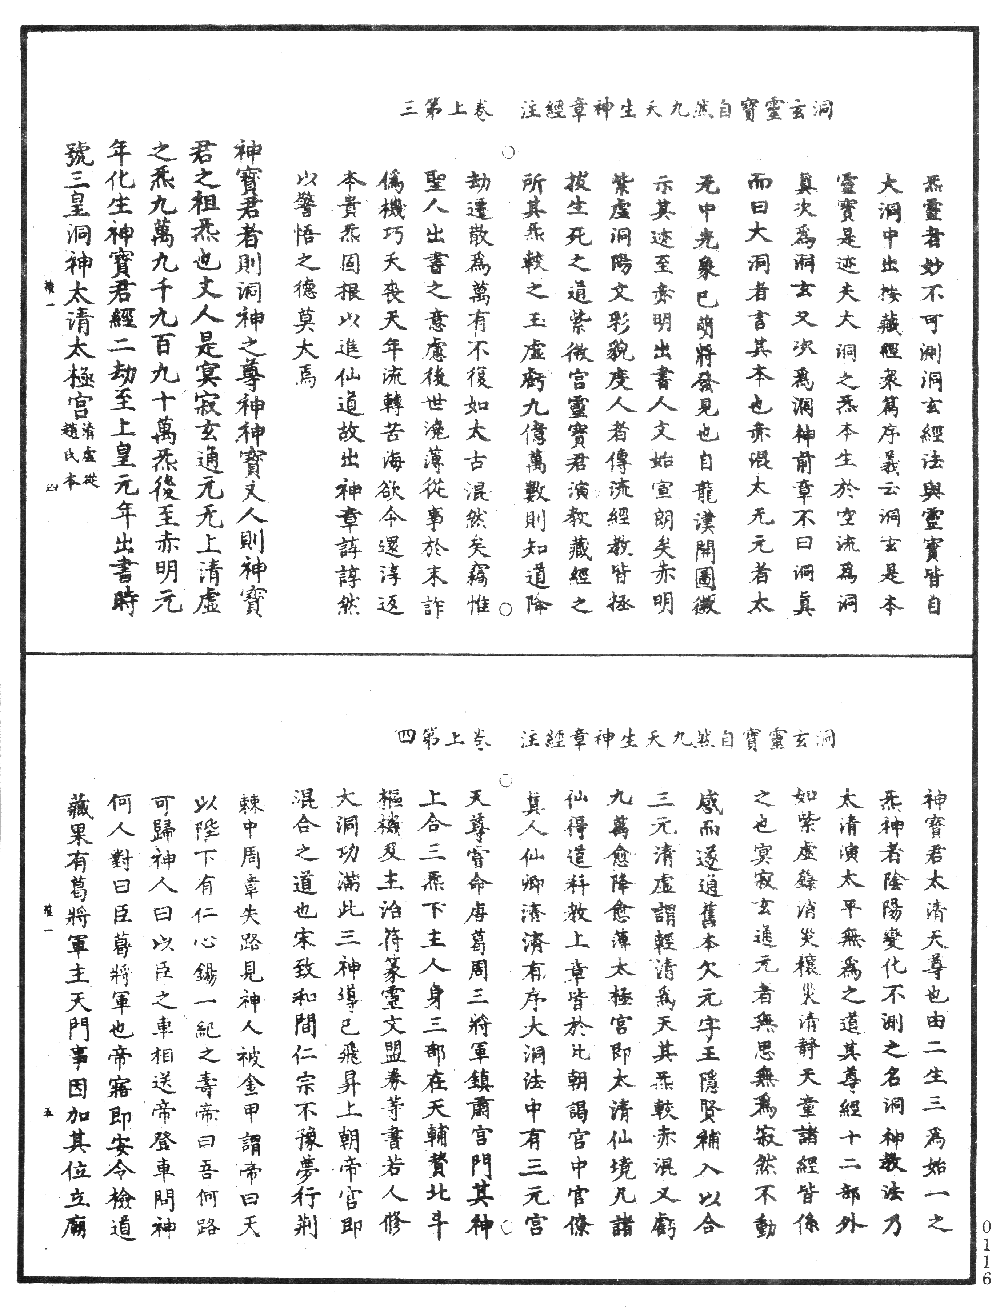 洞玄靈寶自然九天生神章經注　卷上第三
炁靈者妙不可測洞玄經法與靈寶皆自
大洞中出按藏經眾篇序義云洞玄是本
靈寶是迹夫大洞之炁本生於空流為洞
真次為洞玄又次為洞神前章不曰洞真
而曰大洞者言其本也赤混太无元者太
无中光象已萌將發見也自龍漢開圖微
示其迹至赤明出書人文始宣朗矣赤明
紫虛洞陽文彩貌度人者傳流經教皆拯
拔生死之道紫微宮靈寶君演教藏經之
所其炁較之玉虛虧九億萬數則知道降
劫遷散為萬有不復如太古混然矣竊惟
聖人出書之意慮後世澆薄從事於末詐
偽機巧夭喪天年流轉苦海欲令還淳返
本貴炁固根以進仙道故出神章諄諄然
以警悟之德莫大焉
神寶君者則洞神之尊神神寶丈人則神寶
君之祖炁也丈人是冥寂玄通元无上清虛
之炁九萬九千九百九十萬炁後至赤明元
年化生神寶君經二劫至上皇元年出書時
號三皇洞神太清太極宮清虛從趙氏本
洞玄靈寶自然九天生神章經注　卷上第四
神寶君太清天尊也由二生三為始一之
炁神者陰陽變化不測之名洞神教法乃
太清演太平無為之道其尊經十二部外
如紫虛籙消災禳災清靜天童諸經皆係
之也冥寂玄通元者無思無為寂然不動
感而遂通舊本欠元字王隱賢補入以合
三元清虛謂輕清為天其炁較赤混又虧
九萬愈降愈薄太極宮即太清仙境凡諸
仙得道科教上章皆於此朝謁宮中官僚
真人仙卿濟濟有序大洞法中有三元宮
天尊嘗命唐葛周三將軍鎮肅宮門其神
上合三炁下主人身三部在天輔贊北斗
樞機及主治符篆靈文盟券等書若人修
大洞功滿此三神導已飛昇上朝帝宮即
混合之道也宋致和間仁宗不豫夢行荊
棘中周章失路見神人被金甲謂帝曰天
以陛下有仁心錫一紀之壽帝曰吾何路
可歸神人曰以臣之車相送帝登車問神
何人對曰臣葛將軍也帝寤即安令檢道
藏果有葛將軍主天門事因加其位立廟
0116